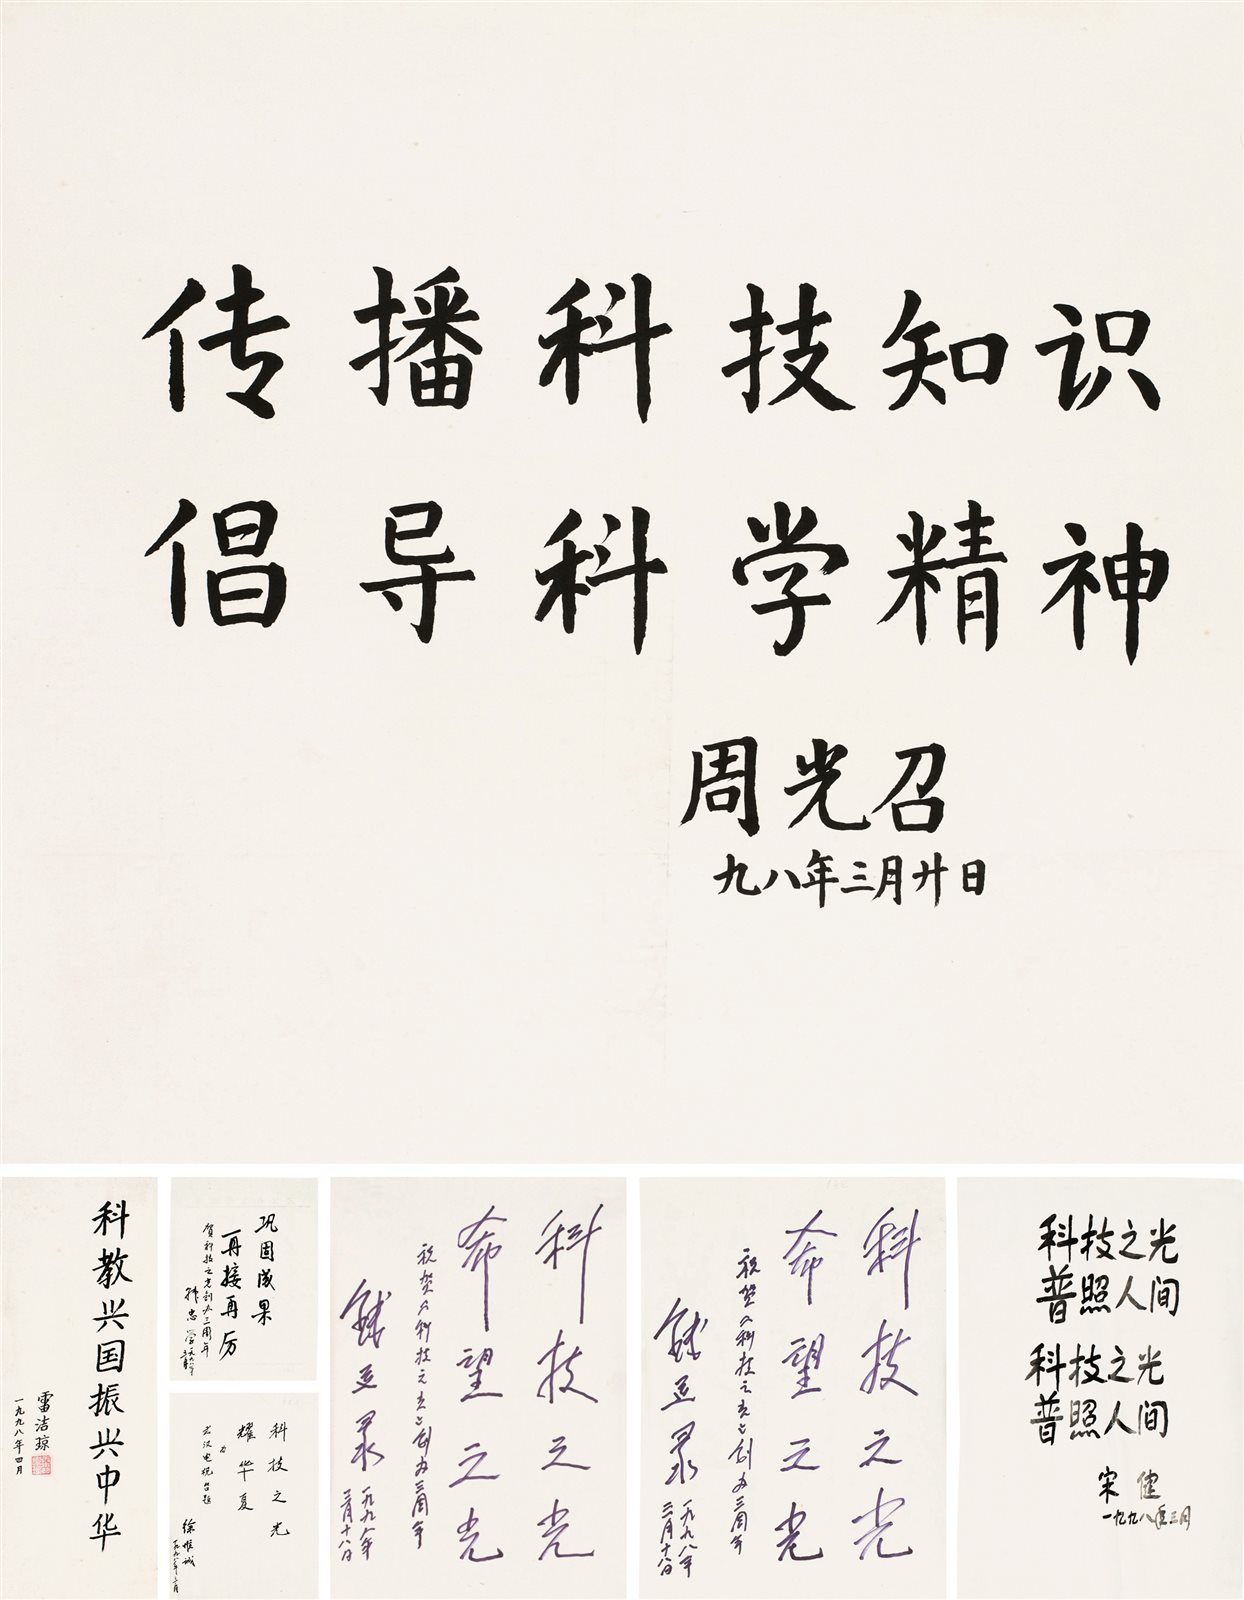 传播科技知识
倡导科学精神
周光召
九八年三月廿日
科教兴国振兴中华
雷洁琼
一九九八年四月
巩固成果
再接再厉
贺科技之光创办三周年
韩忠学
科技之光
耀华夏
为
武汉电视台题
徐惟诚
一九九八年三月
科技之光
希望之光
祝贺《科技之光》创办三周年
钱正英
一九九八年
三月十八日
科技之光
希望之光
祝贺《科技之光》创办三周年
钱正英
一九九八年
三月十八日
科技之光
普照人间
科技之光
普照人间
宋健
一九九八年三月